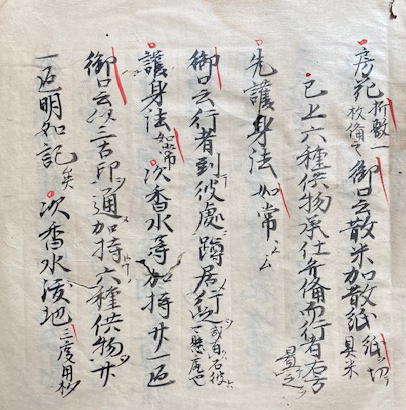 房花折敷一枚備之御口云散米加散紙紙ヲ切具米
已上六種供物承仕弁備而行者
先護身法如常
御口云行者到彼處蹲居行
護身法如常次香水等加持廿一返
御口云以三古印ヲ通加持六種供物ヲ廿
一返明如記矣次香水洒地三度用杓